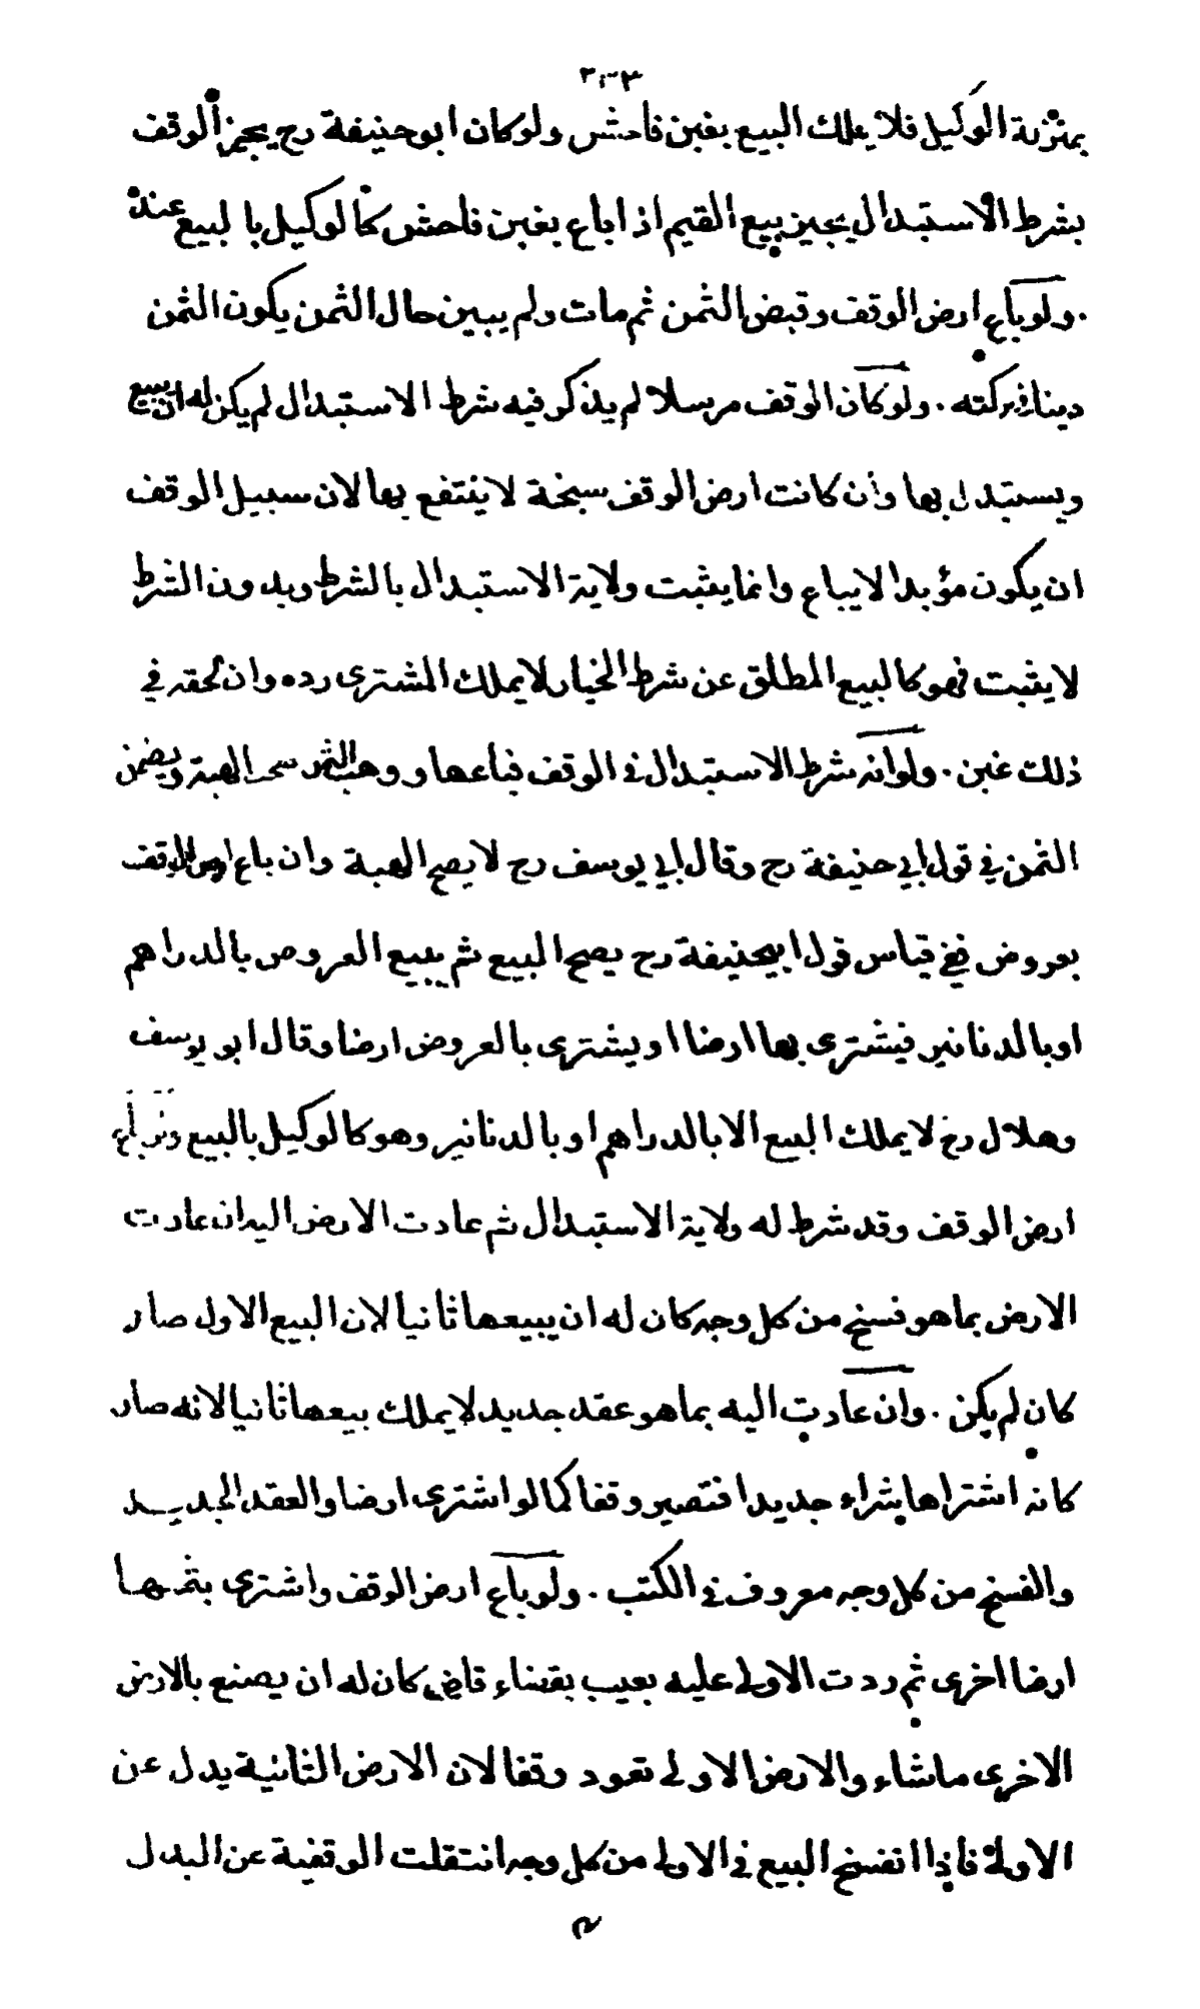 ٣٠٣
بمنزلة الوكيل فلا يملك البيع بغبن فاحش ولو كان ابو حنيفة رح يجيز الوقف
بشرط الاستبدال يجيز بيع القيم اذا باع بغبن فاحش كالوكيل بالبيع عنده
٠ ولو باع ارض الوقف وقبض الثمن ثم مات ولم يبين حال الثمن يكون الثمن
دينا في تركته ٠ ولو كان الوقف مرسلا لم يذكر فيه شرط الاستبدال لم يكن له ان يبيع
ويستبدل بها وان كانت ارض الوقف سبخة لا ينتفع بها لان سبيل الوقف
ان يكون مؤبدا لا يباع وانما يثبت ولاية الاستبدال بالشرط وبدون الشرط
لا يثبت فهو كالبيع المطلق عن شرط الخيار لا يملك المشترى رده وان لحقه في
ذلك غبن ٠ ولو انه شرط الاستبدال في الوقف فباعها ووهب الثمن الهبة ويضمن
الثمن في قول ابي حنيفة رح وقال ابي يوسف رح لا يصح الهبة وان باع ارض الوقف
بعروض ففي قياس قول ابيحنيفة رح يصح البيع ثم يبيع العروض بالدراهم
او بالدنانير فيشترى بها ارضا او يشترى بالعروض ارضا وقال ابو يوسف
وهلال رح لا يملك البيع الا بالدراهم او بالدنانير وهو كالوكيل بالبيع باع
ارض الوقف وقد شرط له ولاية الاستبدال ثم عادت الارض اليه ان عادت
الارض بما هو فسخ من كل وجه كان له ان يبيعها ثانيا لان البيع الاول صار
كان لم يكن ٠ وان عادت اليه بما هو عقد جديد لا يملك بيعها ثانيا لانه صار
كانه اشتراها بشراء جديدا فتصير وقفا كما لو اشترى ارضا والعقد الجديد
والفسخ من كل وجه معروف في الكتب ٠ ولو باع ارض الوقف واشترى بثمنها
ارضا اخرى ثم ردت الاولى عليه بعيب بقضاء قاض كان له ان يصنع بالارض
الاخرى ما شاء والارض الاولى تعود وقفا لان الارض الثانية بدل عن
الاولى فاذا انفسخ البيع في الاولى من كل وجه انتقلت الوقفية عن البدل